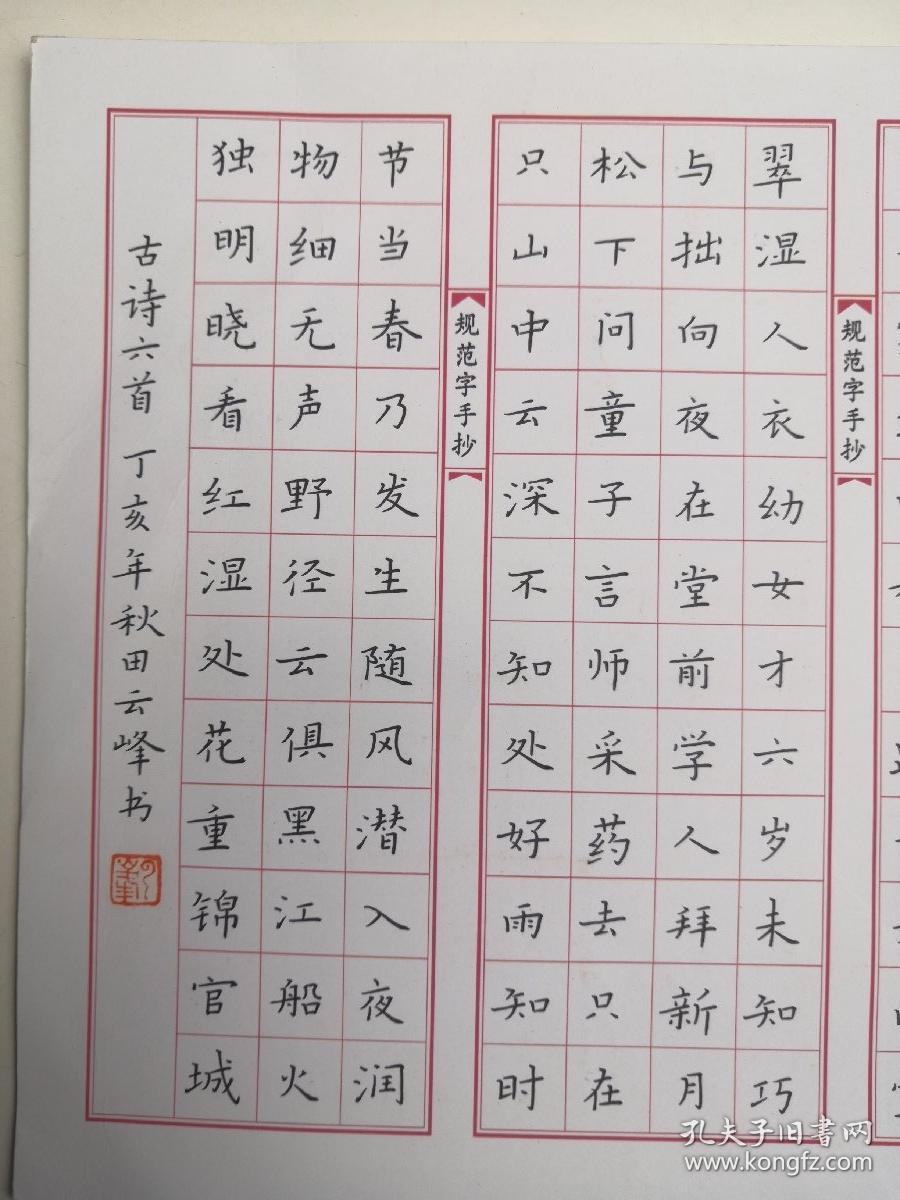 翠湿人衣幼女才六岁未知巧
与拙向夜在堂前学人拜新月
松下问童子言师采药去只在
只山中云深不知处好雨知时
节当春乃发生随风潜入夜润
物细无声野径云俱黑江船火
独明晓看红湿处花重锦官城
古诗六首 丁亥年秋田云峰书
规范字手抄
规范字手抄
孔夫子旧書网
www.kongfz.com